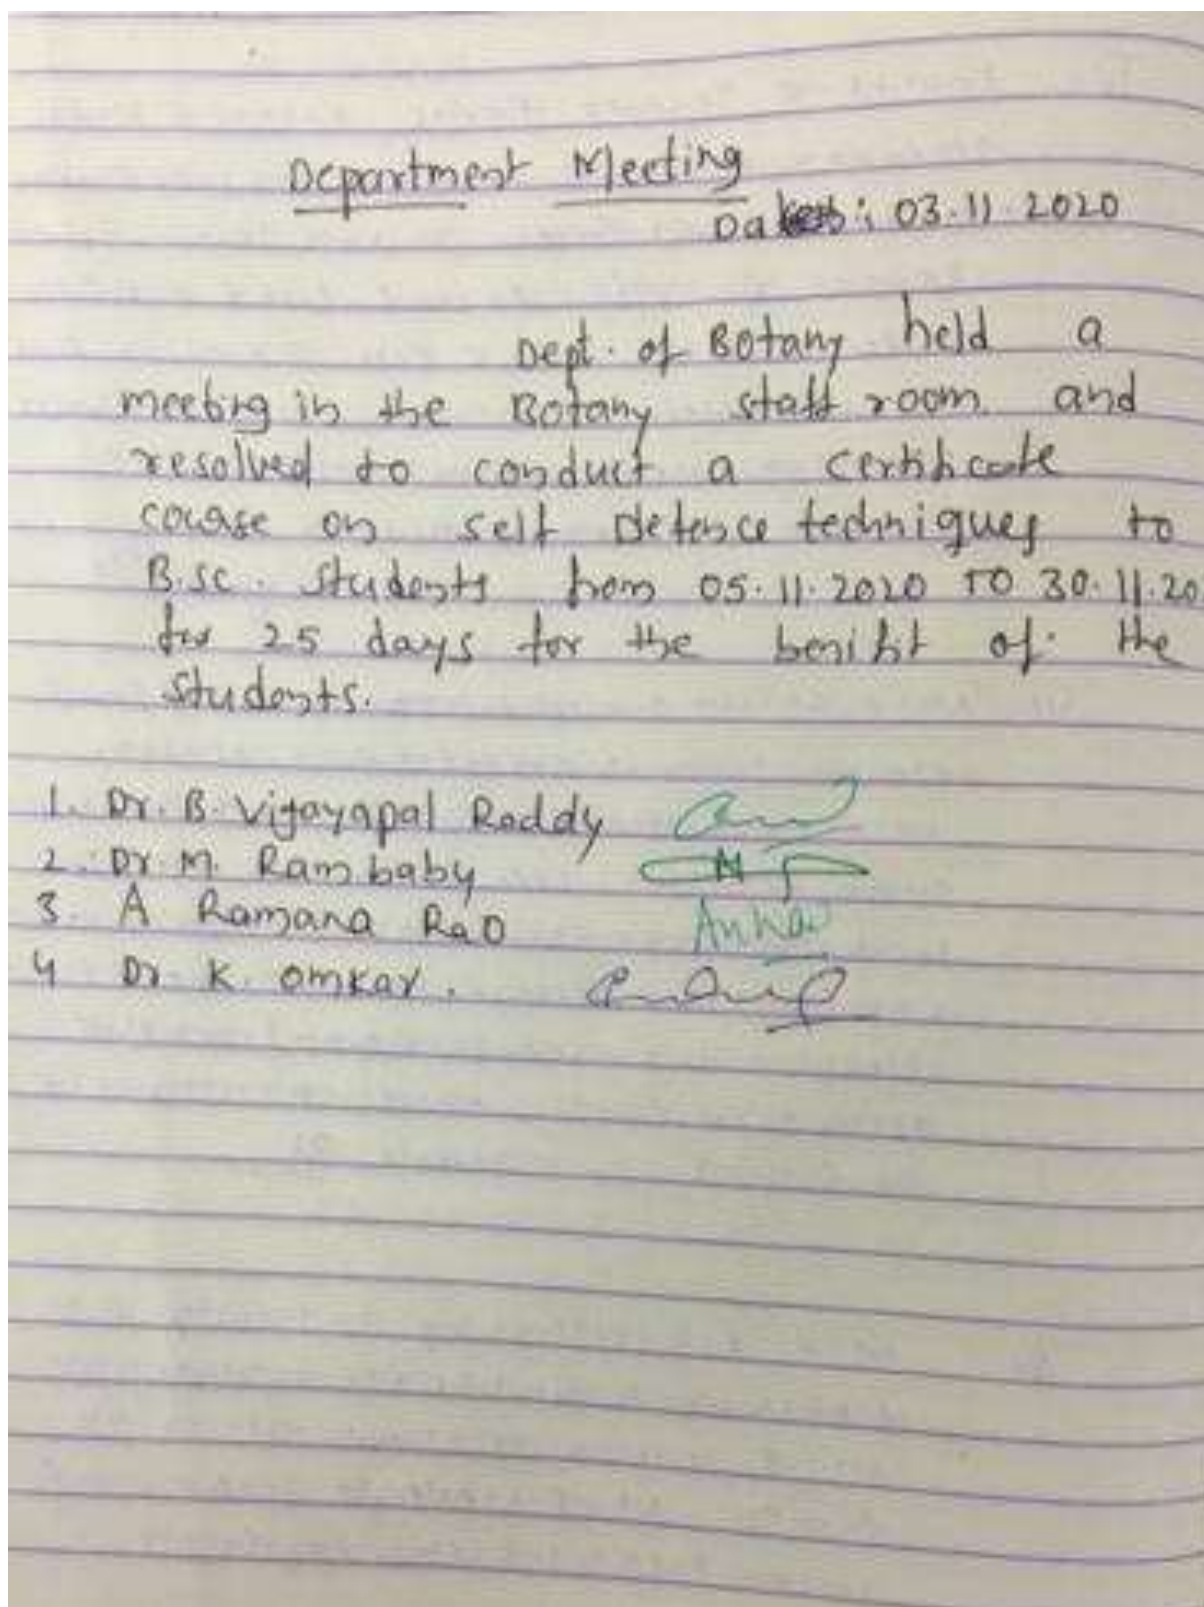 Department Meeting
Date: 03.11.2020
Dept. of Botany held a
meeting in the Botany staff room and
resolved to conduct a certificate
course on self Defence techniques to
B.sc. students from 05.11.2020 TO 30.11.20
for 25 days for the benifit of the
students.
1. Dr. B. Vijayapal Reddy
2. Dr M. Rambaby
3. A Ramana Rao
4 Dr K. Omkar.